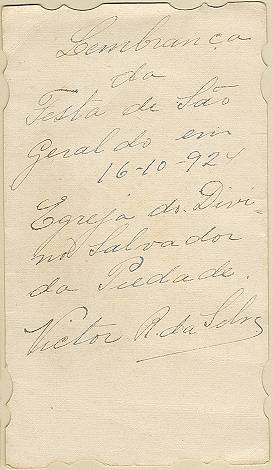 Lembrança
da
Festa de São
Geraldo em
16-10-924
Egreja do Divi-
no Salvador
da Piedade.
Victor R. da Silva